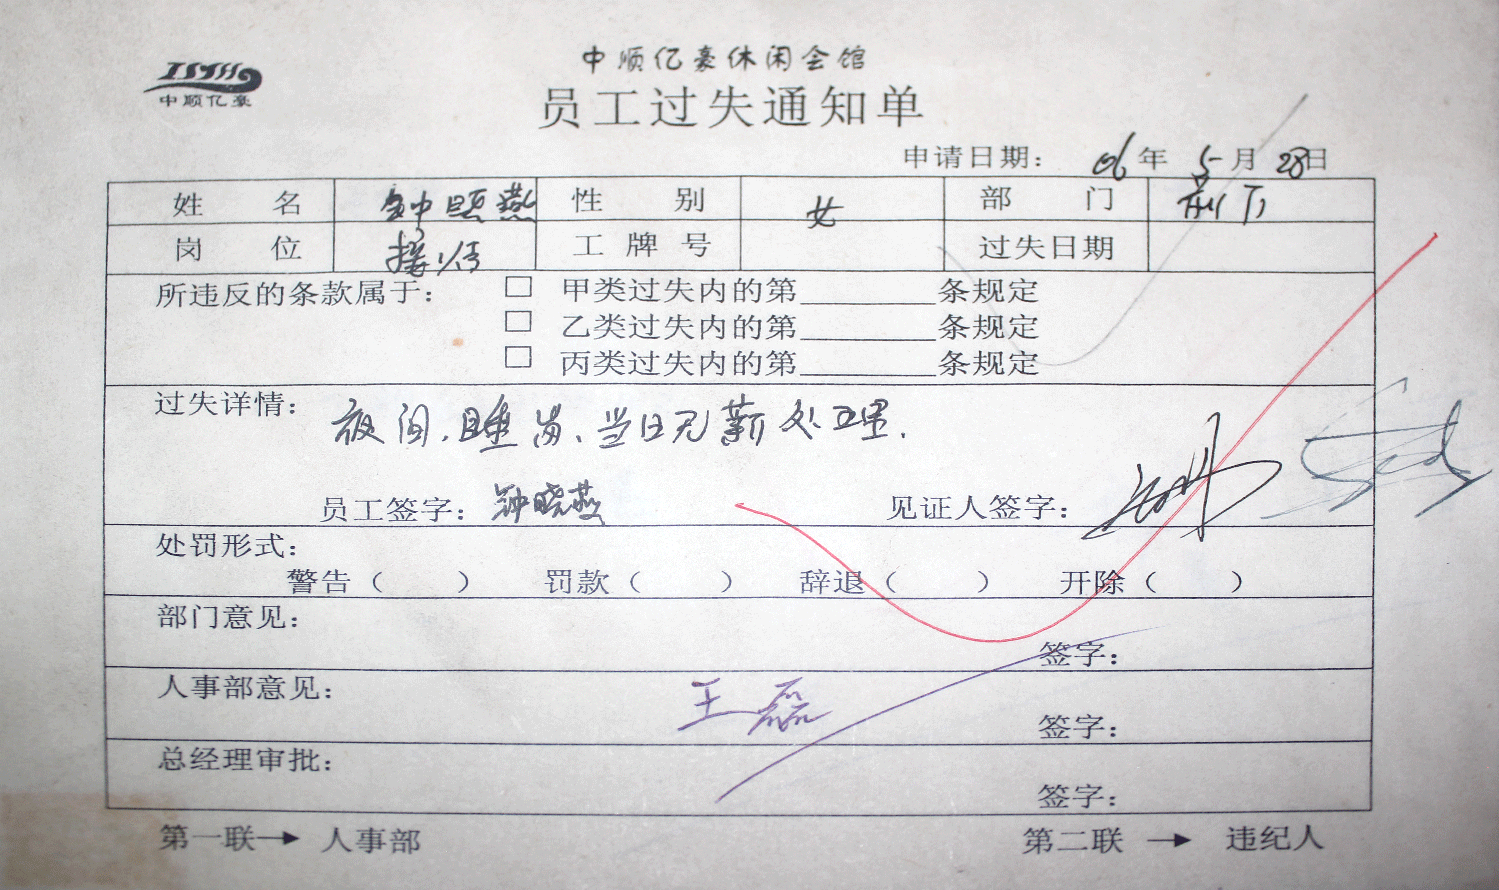 中顺亿豪休闲会馆
中顺亿豪
员工过失通知单
申请日期： 06年 5月 28日
姓 名 钟晓燕 性 别 女 部 门
岗 位 接待 工牌号 过失日期
所违反的条款属于： □ 甲类过失内的第________条规定
□ 乙类过失内的第________条规定
□ 丙类过失内的第________条规定
过失详情：
夜间，睡岗、当日无薪处理.
员工签字：钟晓燕 见证人签字：
处罚形式：
警告（ ） 罚款（ ） 辞退（ ） 开除（ ）
部门意见：
签字：
人事部意见： 王磊
签字：
总经理审批：
签字：
第一联→ 人事部 第二联 → 违纪人